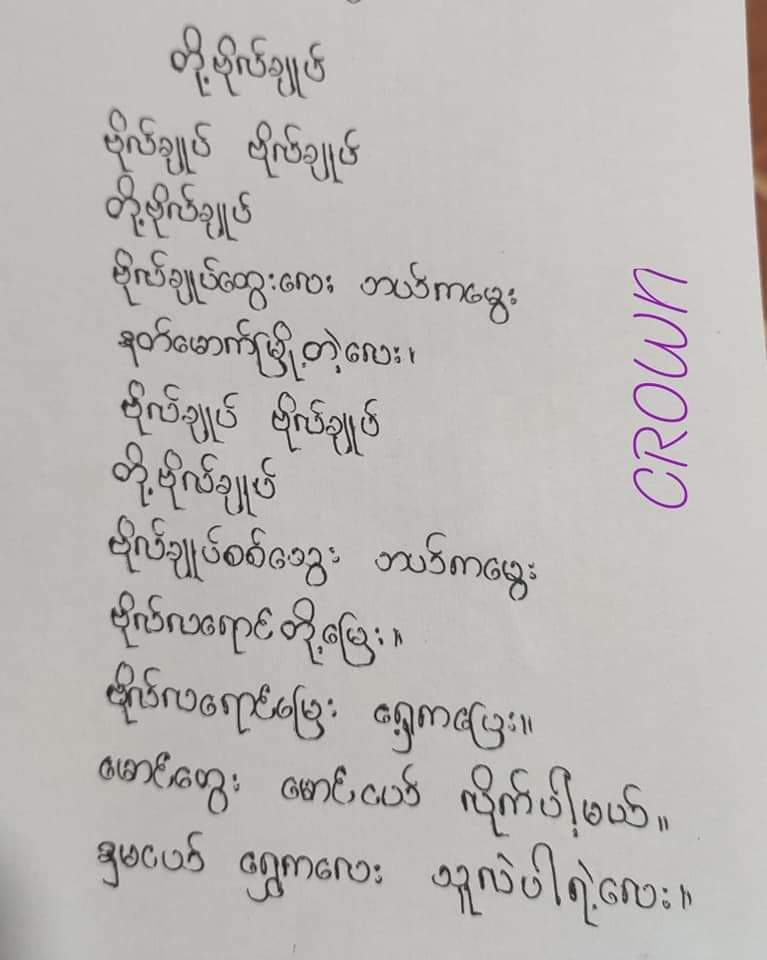 တို့ဗိုလ်ချုပ်
ဗိုလ်ချုပ် ဗိုလ်ချုပ်
တို့ဗိုလ်ချုပ်
ဗိုလ်ချုပ်ထွေးလေး ဘယ်ကမွေး
နတ်မောက်မြို့တဲ့လေး။
ဗိုလ်ချုပ် ဗိုလ်ချုပ်
တို့ဗိုလ်ချုပ်
ဗိုလ်ချုပ်စစ်သွေး ဘယ်ကမွေး
ဗိုလ်လရောင်တို့မြွေး။
ဗိုလ်လရောင်မြွေး ရွှေကမြွေး။
မောင်ထွေး မောင်ငယ် လိုက်ပါ့မယ်။
နှမငယ် ရွှေကလေး သူလဲပါရဲ့လေး။
CROWN